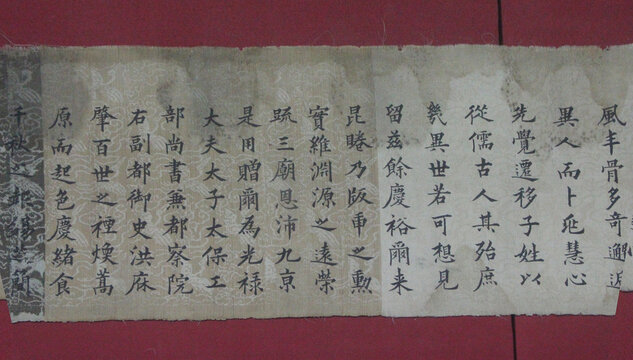 風丰骨多奇邂
異人而卜兆慧心
先覺遷移子姓以
從儒古人其殆庶
幾異世若可想見
留茲餘慶裕爾来
昆睠乃版之勳
實維淵源之遠榮
疏三廟恩沛九京
是用贈爾為光祿
大夫太子太保工
部尚書兼都察院
右副都御史洪庥
肇百世之禋煥蒿
原而起色慶緒食
千秋之報